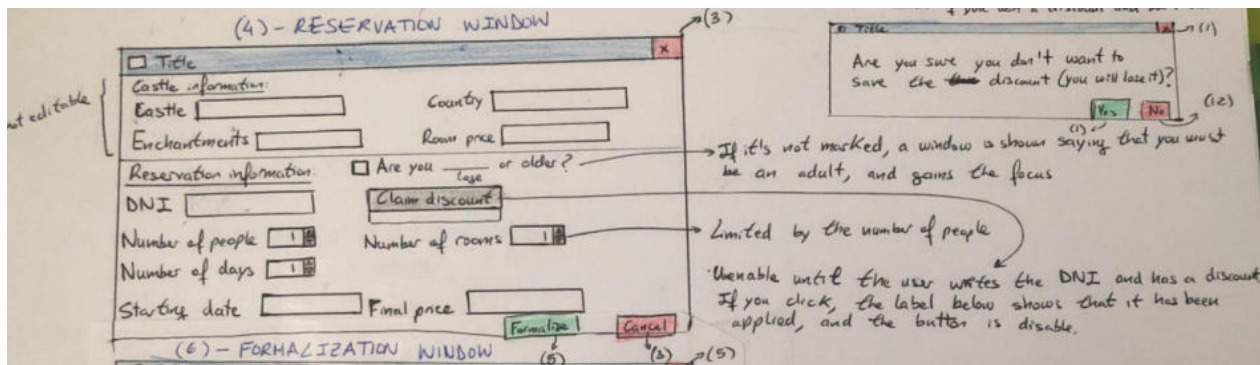 (4) - RESERVATION WINDOW
(3)
Title
x
not editable
Castle information:
Castle
Country
Enchantments
Room price
Reservation information:
Are you ____ or older?
age
DNI
Claim discount
Number of people 1
Number of rooms 1
Number of days 1
Starting date
Final price
Formalize
Cancel
(5)
(3)
(6) - FORMALIZATION WINDOW
(5)
if you won a discount and
Title
x
(1)
Are you sure you don't want to
save the discount (you will lose it)?
Yes
No
(1)
(12)
If it's not marked, a window is shown saying that you must
be an adult, and gains the focus
Limited by the number of people
Unenable until the user writes the DNI and has a discount
If you click, the label below shows that it has been
applied, and the button is disable.